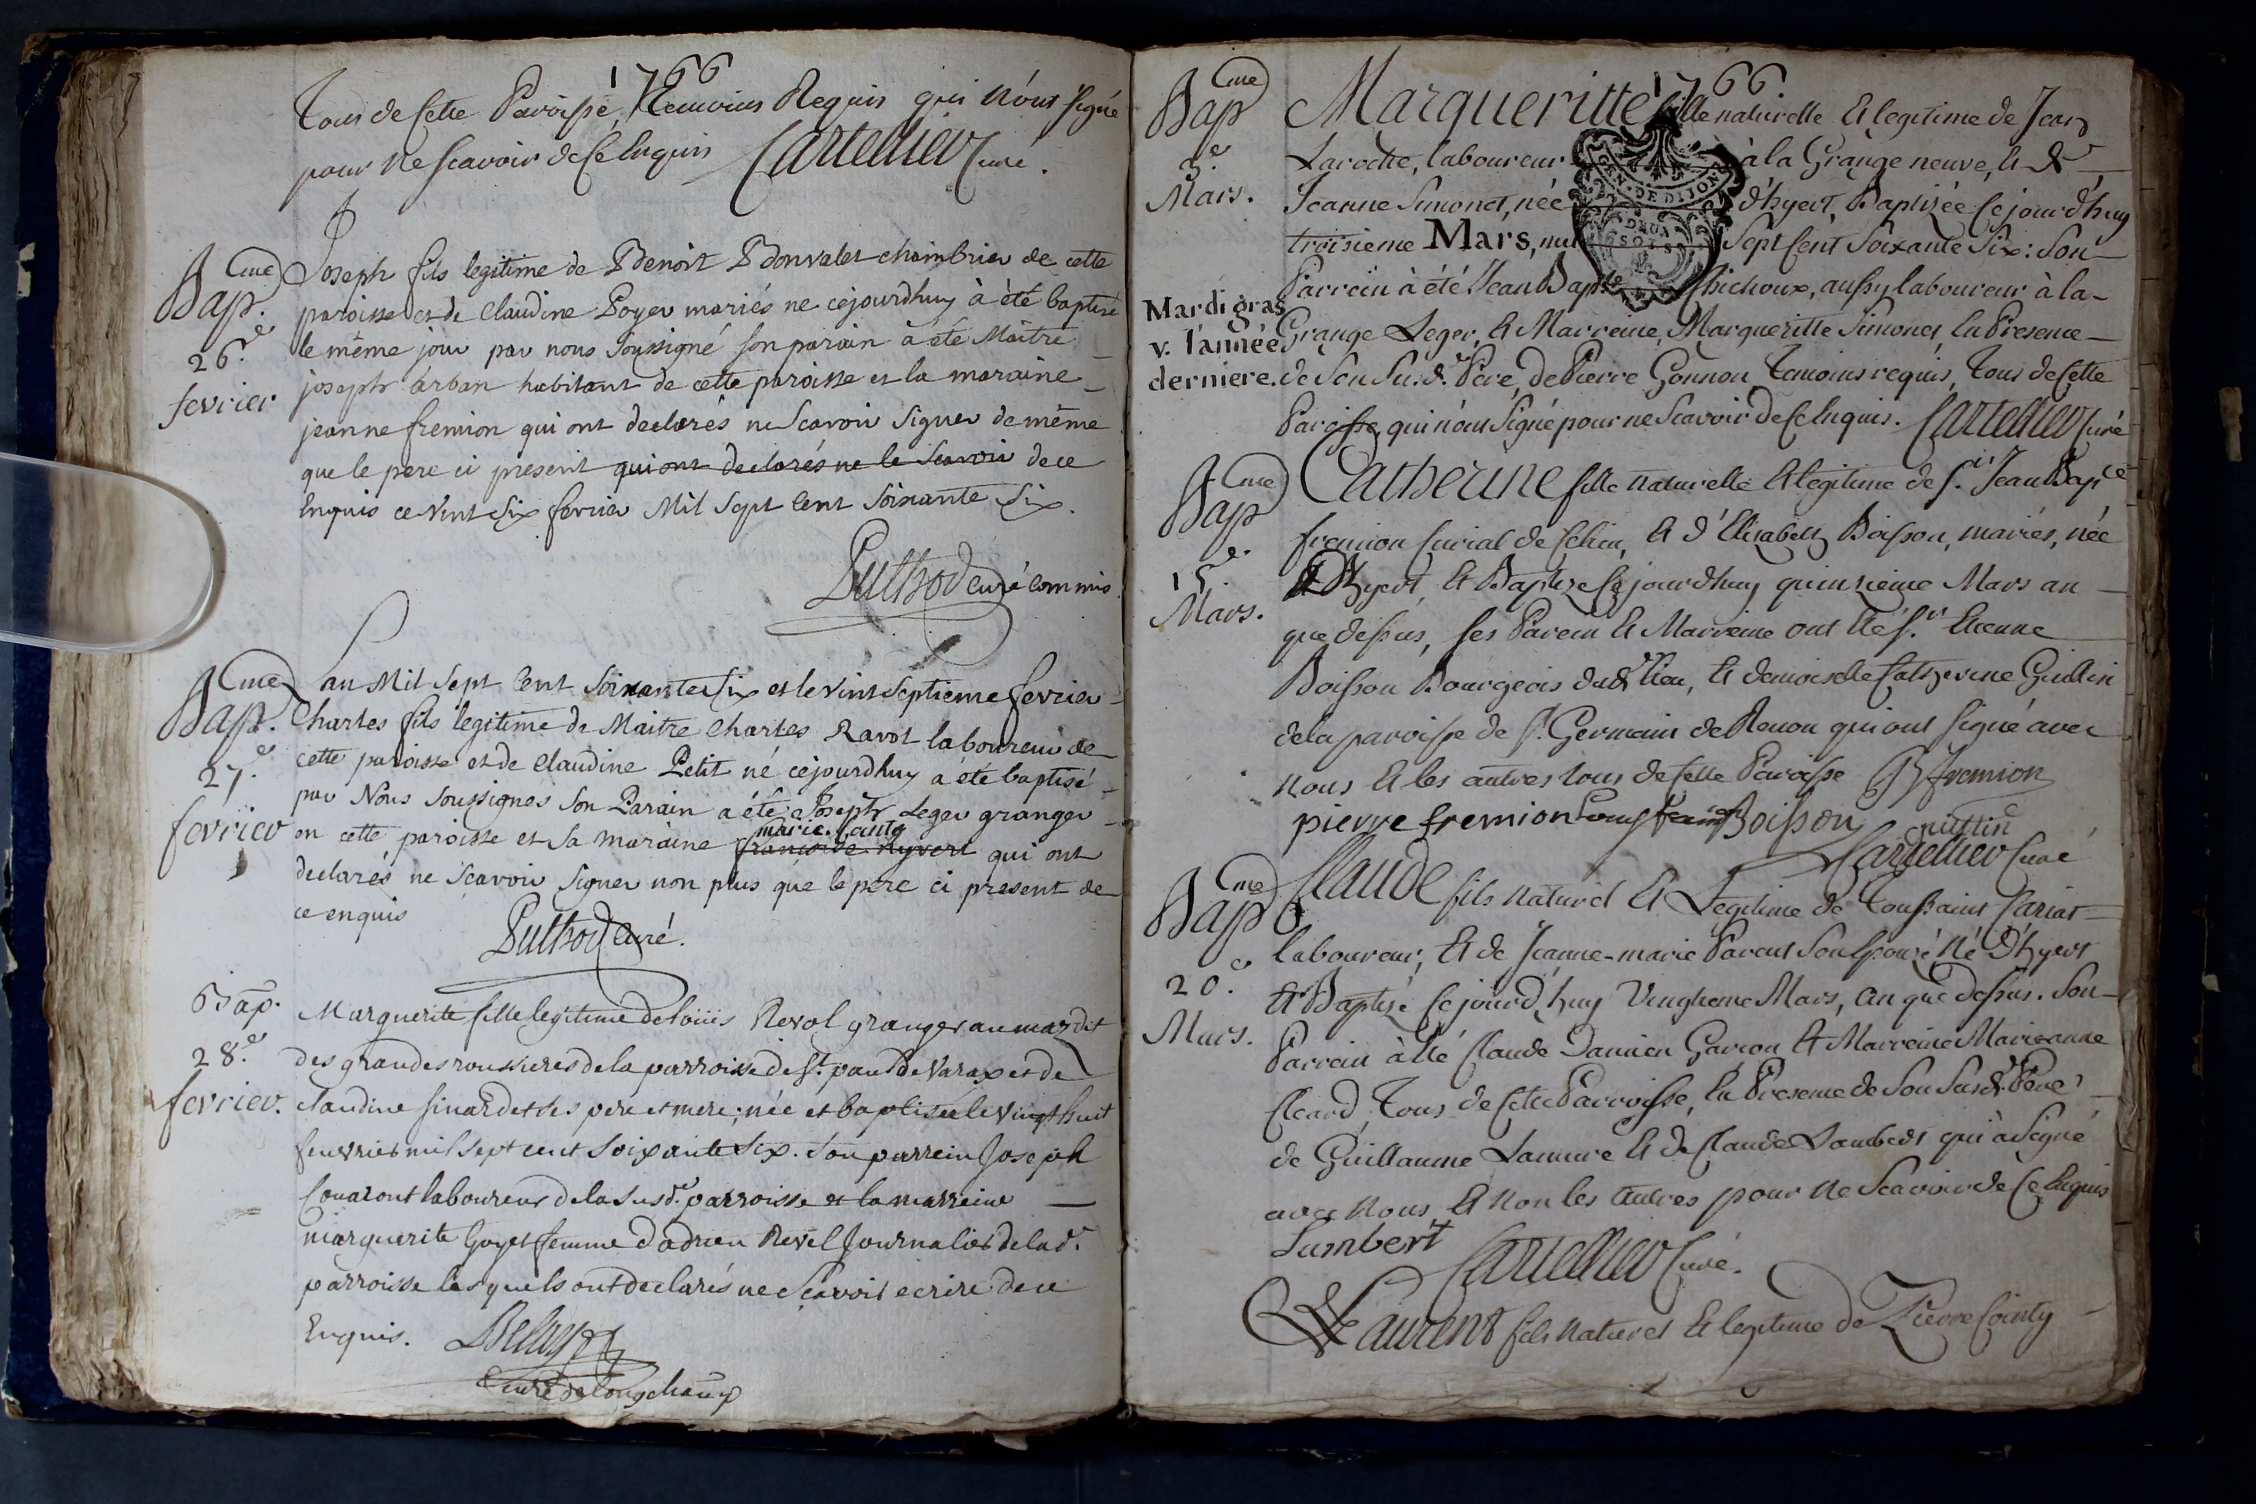 1766
Tous de Cette Paroisse, Temoins Requis qui N'ont signé
pour Ne scavoir de Ce Enquis Cartellier Curé.
Bap.me
26.e
fevrier
Joseph fils legitime de Benoit Bonvalet chambrier de cette
paroisse et de Claudine Poyer mariés ne cejourdhuy à été baptisé
le même jour par nous Soussigné son parain à été Maitre
joseph Arban habitant de cette paroisse et la maraine
jeanne fremion qui ont declarés ne Scavoir Signer de même
que le pere ci present qui ont declarés ne le Scavoir de ce
Enquis ce vint Six fevrier Mil Sept Cent Soixante Six.
Puthod Curé Commis
Bap.me
27.e
fevrier
au Mil Sept Cent Soixante Six et le vint septieme fevrier
Charles fils legitime de Maitre Charles Ravot laboureur de
cette paroisse et de Claudine Petit né cejourdhuy a été baptisé
par Nous Soussignes Son Parain a été Joseph Leger granger
en cette paroisse et Sa maraine francoise Ryvert qui ont
marie
declarés ne Scavoir Signer non plus que le pere ci present de
ce enquis
Puthod Curé.
Bap.
28.e
fevrier.
Marguerite fille legitime de loüis Revol granger au mas dit
des grandes roussieres de la parroisse de St. paul de Varax et de
claudine sinardet ses pere et mere; née et baptisée le vingt huit
feuvrier mil sept cent soixante six. son parrein Joseph
Couaront laboureur de la susd.e parroisse et la marreine
marguerite Goyet femme d'adrien Revel Journalier de lad.e
parroisse lesquels ont declarés ne Scavoir ecrire de ce
Enquis.
Curé de Longchamp
1766.
Bap.me
3.e
Mars.
Mardi gras
v. l'année
derniere.
Margueritte fille naturelle & legitime de Jean
Laroche, laboureur à la Grange neuve, & d.e
Jeanne Simonet, née d'hyert, Baptisée Cejourd'huy
troisieme Mars, mil Sept Cent Soixante Six: Son
GEN. DE DIJON
DEUX
SOLS
Parrein à été Jean Bap.te Chichoux, aussy laboureur à la
Grange Leger, & Marreine, Margueritte Simonet, En Presence
de Son Su.d. Pere, de Pierre Gonnon Temoins requis, Tous de Cette
Paroisse, qui n'ont Signé pour ne Scavoir de Ce Enquis. Cartellier Curé
Bap.me
15.e
Mars.
Catherine fille naturelle & legitime de S.r Jean Bap.te
fremion Curial de Ce lieu, & d'Elisabeth Boisson, mariés, née
d'hyert, & Baptize Cejourdhuy quinzieme Mars an
que dessus, ses Parein & Marreine ont Eté S.r Etienne
Boisson Bourgeois dud. lieu, & demoiselle Catherine Guillin
de la paroisse de St. Germain de Renon qui ont signé avec
nous & les autres tous de Cette Paroisse fremion
pierre fremion Boisson
Cartellier Curé
Bap.me
20.e
Mars.
Claude fils naturel & Legitime de Toussaint Cariat
laboureur, & de Jeanne-marie Parent Son Epouse Né d'hyert
& Baptisé Cejourd'huy Vingtieme Mars, an que dessus. Son
Parrein à Eté Claude Damien Garcon & Marreine Marieanne
Cleard, Tous de Cette Parroisse, En Presence de Son Susd. Pere,
de Guillaume Lamure & de Claude Lambert qui à signé
avec nous & non les Autres pour Ne Scavoir de Ce Enquis
Lambert Cartellier Curé.
Laurent fils naturel & legitime de Pierre Cointy